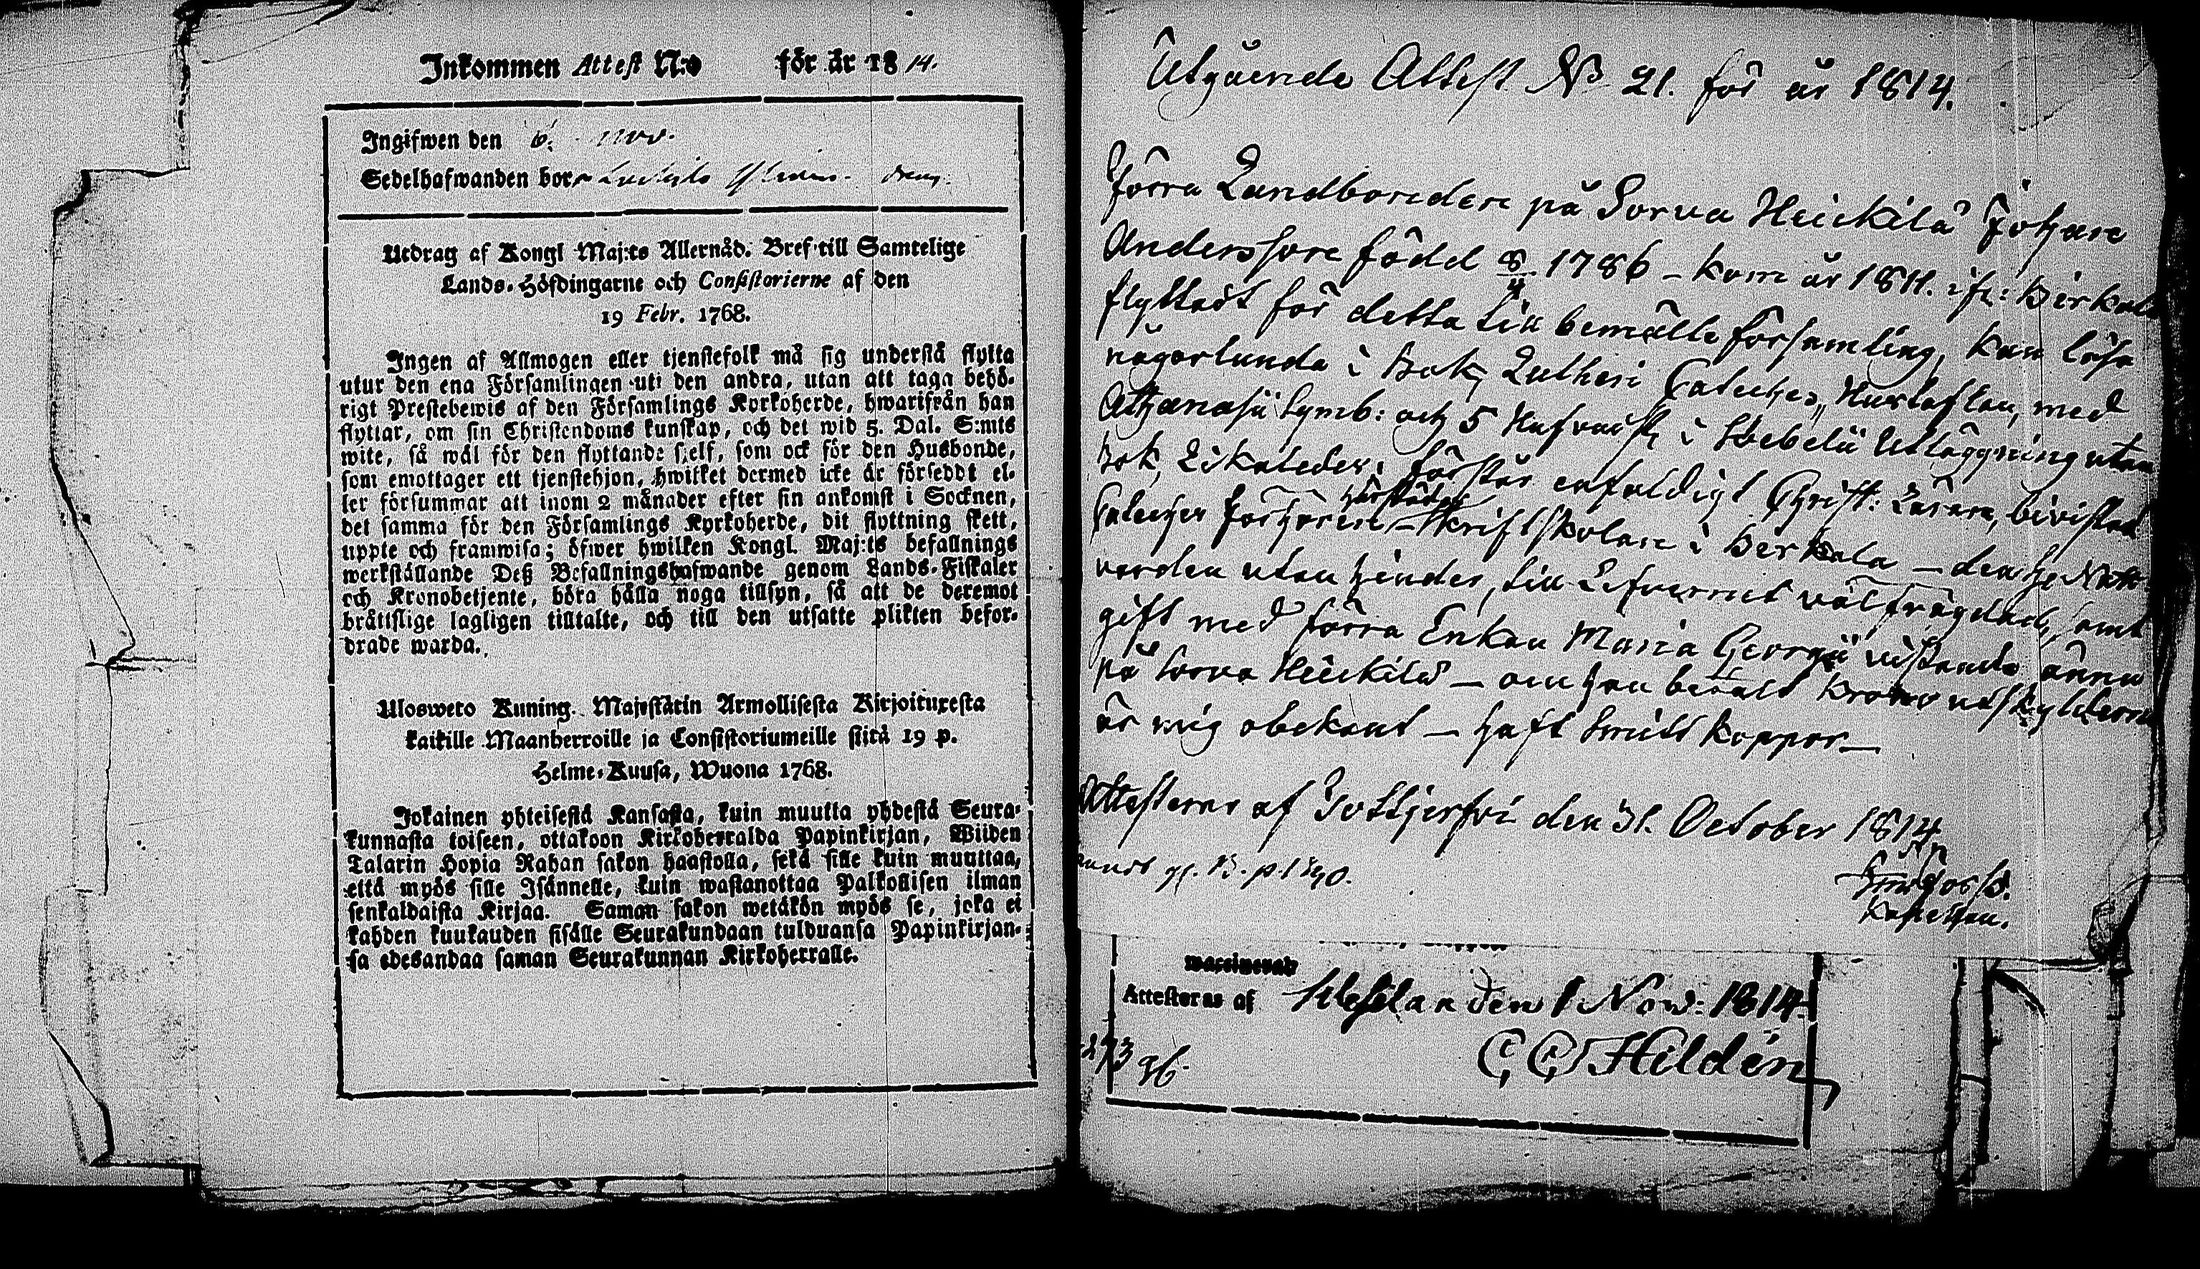 Inkommen Attest N:o för år 1814.
Ingifwen den 6. nov.
Sedelhafwanden bor
Utdrag af Kongl Maj:ts Allernåd. Bref till Samtelige
Lands-Höfdingarne och Consistorierne af den
19 Febr. 1768.
Ingen af Allmogen eller tjenstefolk må sig understå flytta
utur den ena Församlingen uti den andra, utan att taga behö-
rigt Prestebewis af den Församlings Kyrkoherde, hwarifrån han
flyttar, om sin Christendoms kunskap, och det wid 5. Dal. S:mts
wite, så wäl för den flyttande sjelf, som ock för den Husbonde,
som emottager ett tjenstehjon, hwilket dermed icke är förseddt el-
ler försummar att inom 2 månader efter sin ankomst i Socknen,
det samma för den Församlings Kyrkoherde, dit flyttning skett,
uppte och framwisa; öfwer hwilken Kongl. Maj:ts befallnings
werkställande Deß Befallningshafwande genom Lands-Fiskaler
och Kronobetjente, böra hålla noga tillsyn, så att de deremot
bråttslige lagligen tilltalte, och till den utsatte plikten befor-
drade warda.
Ulosweto Kuning. Majestätin Armollisesta Kirjoituxesta
kaikille Maanherroille ja Consistoriumeille siitä 19 p.
Helme-Kuusa, Wuona 1768.
Jokainen yhteisestä Kansasta, kuin muutta yhdestä Seura-
kunnasta toiseen, ottakoon Kirkoherralda Papinkirjan, Wiiden
Talarin Hopia Rahan sakon haastolla, sekä sille kuin muuttaa,
että myös sille Isännelle, kuin wastanottaa Palkollisen ilman
senkaldaista Kirjaa. Saman sakon wetäkön myös se, joka ei
kahden kuukauden sisälle Seurakundaan tulduansa Papinkirjan-
sa edesandaa saman Seurakunnan Kirkoherralle.
Utgående Attest No 21. för år 1814.
Förra Landbonden på Sorva Heickilä Johan
Andersson född 8/4 1786 – kom år 1811. ifr: Birkala
flyttadt för detta till bemälte församling, kan läsa
någorlunda i Bok, Lutheri Cateches, Hustaflan, med
Athanasii Symb: och 5 Hufvudst: i Svebelii Utläggning utan
bok, förstår enfaldigt Christ: Läran, bivistad
Catechex förhören härstädes – Skriftskolan i Berkala – den H. Nattv
varden utan hinder, till Lefvernet väl frägdad, samt
gift med förra Enkan Maria Georgii vistande ännu
på Sorva Heickilä – om han betalt Krono utskylderne
är mig obekant – haft Smitt koppor –
Attesteras af Gottjerfvi den 31. October 1814
p. 1390.
Kapellan.
waccinerad
Attesteras af den 1 Nov: 1814.
273
36.
C G Hildén